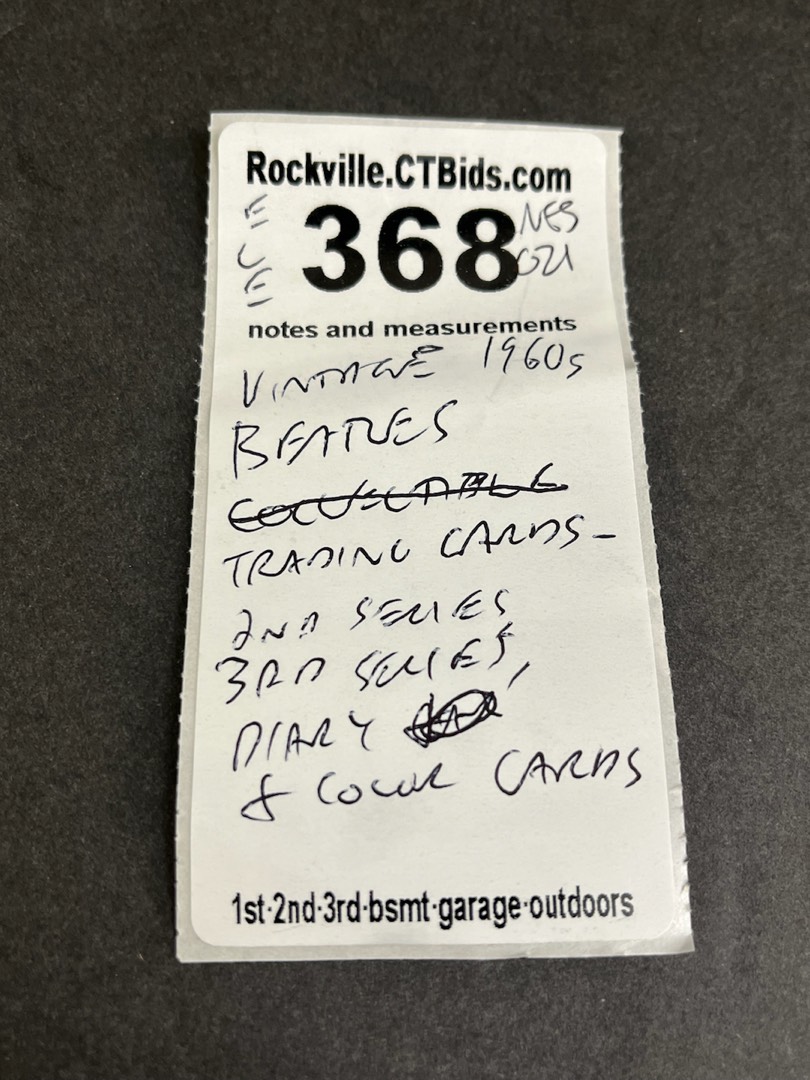 Rockville.CTBids.com
E 368 NES
C
E
notes and measurements
VINTAGE 1960s
BEATLES
COLLECTABLE
TRADING CARDS-
2ND SERIES
3RD SERIES,
DIARY
& COLOR CARDS
1st·2nd·3rd·bsmt·garage·outdoors